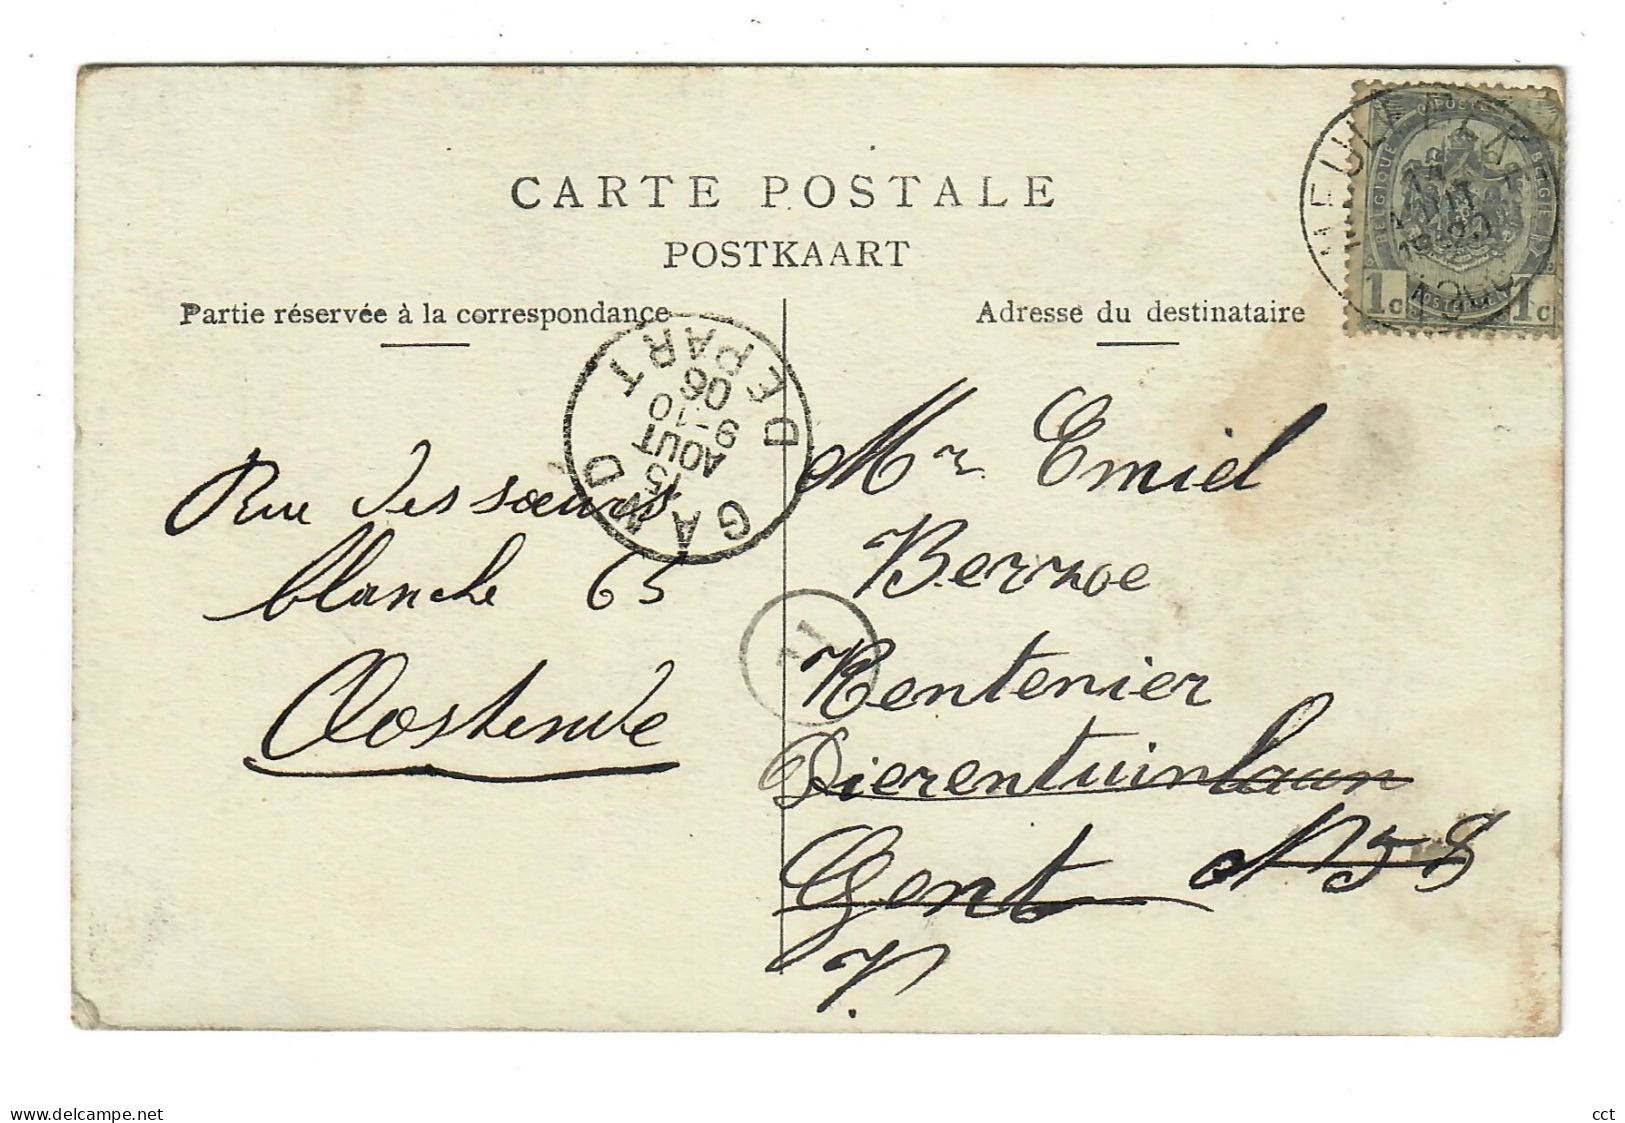 CARTE POSTALE
POSTKAART
Partie réservée à la correspondance
Adresse du destinataire
BELGIQUE
BELGIË
1c 1c
14
GAND
15
AOUT
9-10
06
DEPART
Rue des sœurs
blanche 65
Oostende
Mr Emiel
Bernoe
Rentenier
Dierentuinlaan
Gent N 58
www.delcampe.net
cct